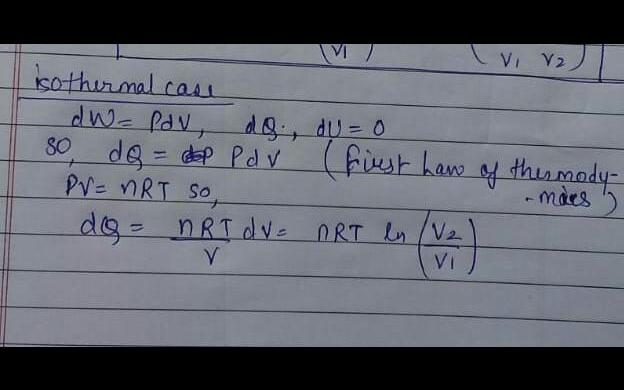 (V1) (V1 V2)
isothermal case
dW = PdV, dQ., dU = 0
so, dQ = PdV (First Law of thermody-
-mács)
PV = nRT so,
dQ = nRT/V dV = nRT ln (V2/V1)